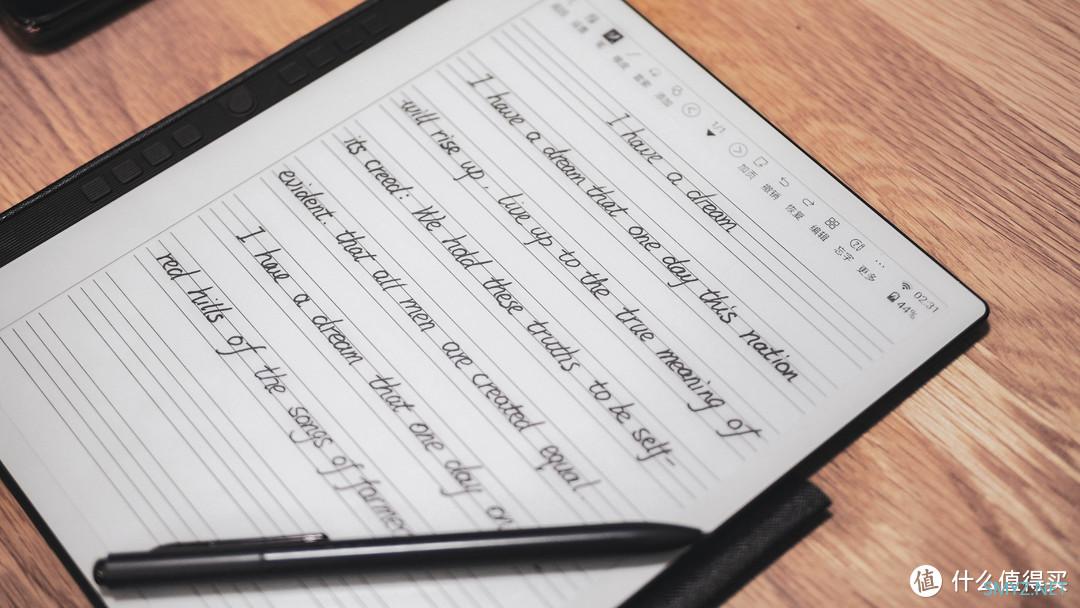 加页 撤销 恢复 编辑 忘字 更多
1/1
02:31
44%
I have a dream
I have a dream that one day this nation
will rise up. live up to the true meaning of
its creed: We hold these truths to be self-
evident. that all men are created equal
I have a dream that one day on
red hills of the songs of
值 什么值得买